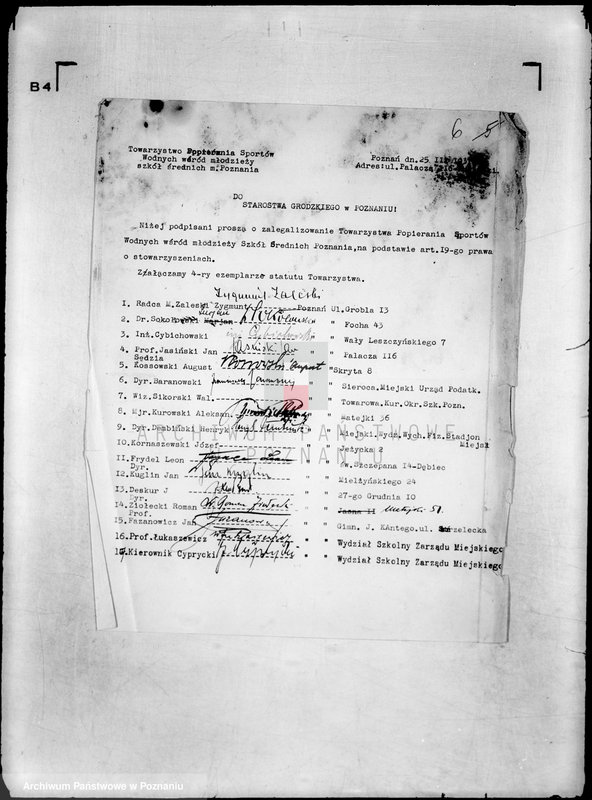 B4
6 5
Towarzystwo Popierania Sportów
Wodnych wśród młodzieży
szkół średnich m.Poznania
Poznań dn.25
Adres:ul.Palacza
DO
STAROSTWA GRODZKIEGO w POZNANIU!
Niżej podpisani proszą o zalegalizowanie Towarzystwa Popierania Sportów
Wodnych wśród młodzieży Szkół Średnich Poznania,na podstawie art.19-go prawa
o stowarzyszeniach.
Załączamy 4-ry exemplarze statutu Towarzystwa.
Zygmunt Zaleski
1. Radca M.Zaleski Zygmunt Poznań Ul.Grobla 13
2. Dr.Sokołowski Marjan " " Focha 43
3. Inż.Cybichowski inż Cybichowski " " Wały Leszczyńskiego 7
4. Prof.Jasiński Jan Jasiński Jan " " Palacza 116
Sędzia
5. Kossowski August " "Skryta 8
6. Dyr.Baranowski " " Sieroca.Miejski Urząd Podatk.
7. Wiz.Sikorski Wal. " " Towarowa.Kur.Okr.Szk.Pozn.
8. Mjr.Kurowski Aleksan. " " Matejki 36
9. Dyr.Dembiński Henryk " " Miejski.Wydz.Wych.Fiz.Stadjon
Miejsk
10. Kornaszewski Józef " " Jeżycka 2
11. Frydel Leon " " św.Szczepana 14-Dębiec
Dyr.
12. Kuglin Jan " " Mielżyńskiego 24
13. Deskur J " " 27-go Grudnia 10
Dyr.
14. Ziołecki Roman " " Jasna 11 Matejki 51.
Prof.
15. Fazanowicz Jan " " Gimn. J KAntego.ul. Strzelecka
16. Prof.Łukaszewicz " " Wydział Szkolny Zarządu Miejskiego
17. Kierownik Cyprycki " " Wydział Szkolny Zarządu Miejskiego
ARCHIWUM PAŃSTWOWE
W POZNANIU
Archiwum Państwowe w Poznaniu